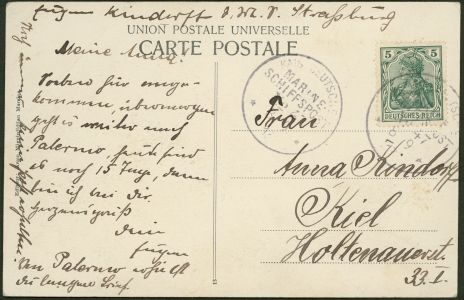 Eugen Kindorff S.M.S. Straßburg
UNION POSTALE UNIVERSELLE
CARTE POSTALE
Meine Anna!
Soeben hier ange-
kommen, übermorgen
geht es weiter nach
Palermo,
noch 15 Tage, dann
bin ich bei dir.
Herzengruß
Dein
Eugen
Von Palermo erhältst
du längeren Brief.
KAIS. DEUTSCHE
MARINE-
SCHIFFSPOST
5 5
DEUTSCHES REICH
Frau
Anna Kindorff
Kiel
Holtenauerst.
33. I.